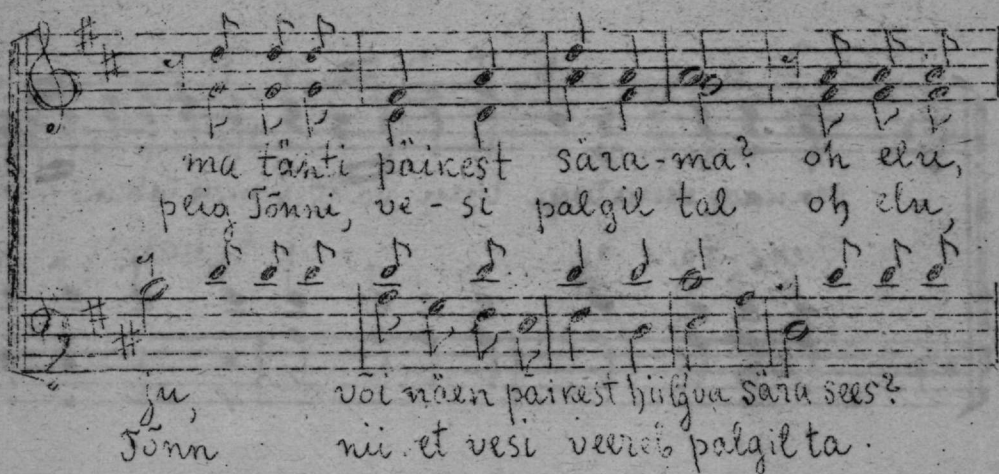 ma tänti päikest sära-ma? oh elu,
peig Tõnni, ve-si palgil tal oh elu,
ju, või näen päikest hiilgva sära sees?
Tõnn nii et vesi veereb palgil ta.